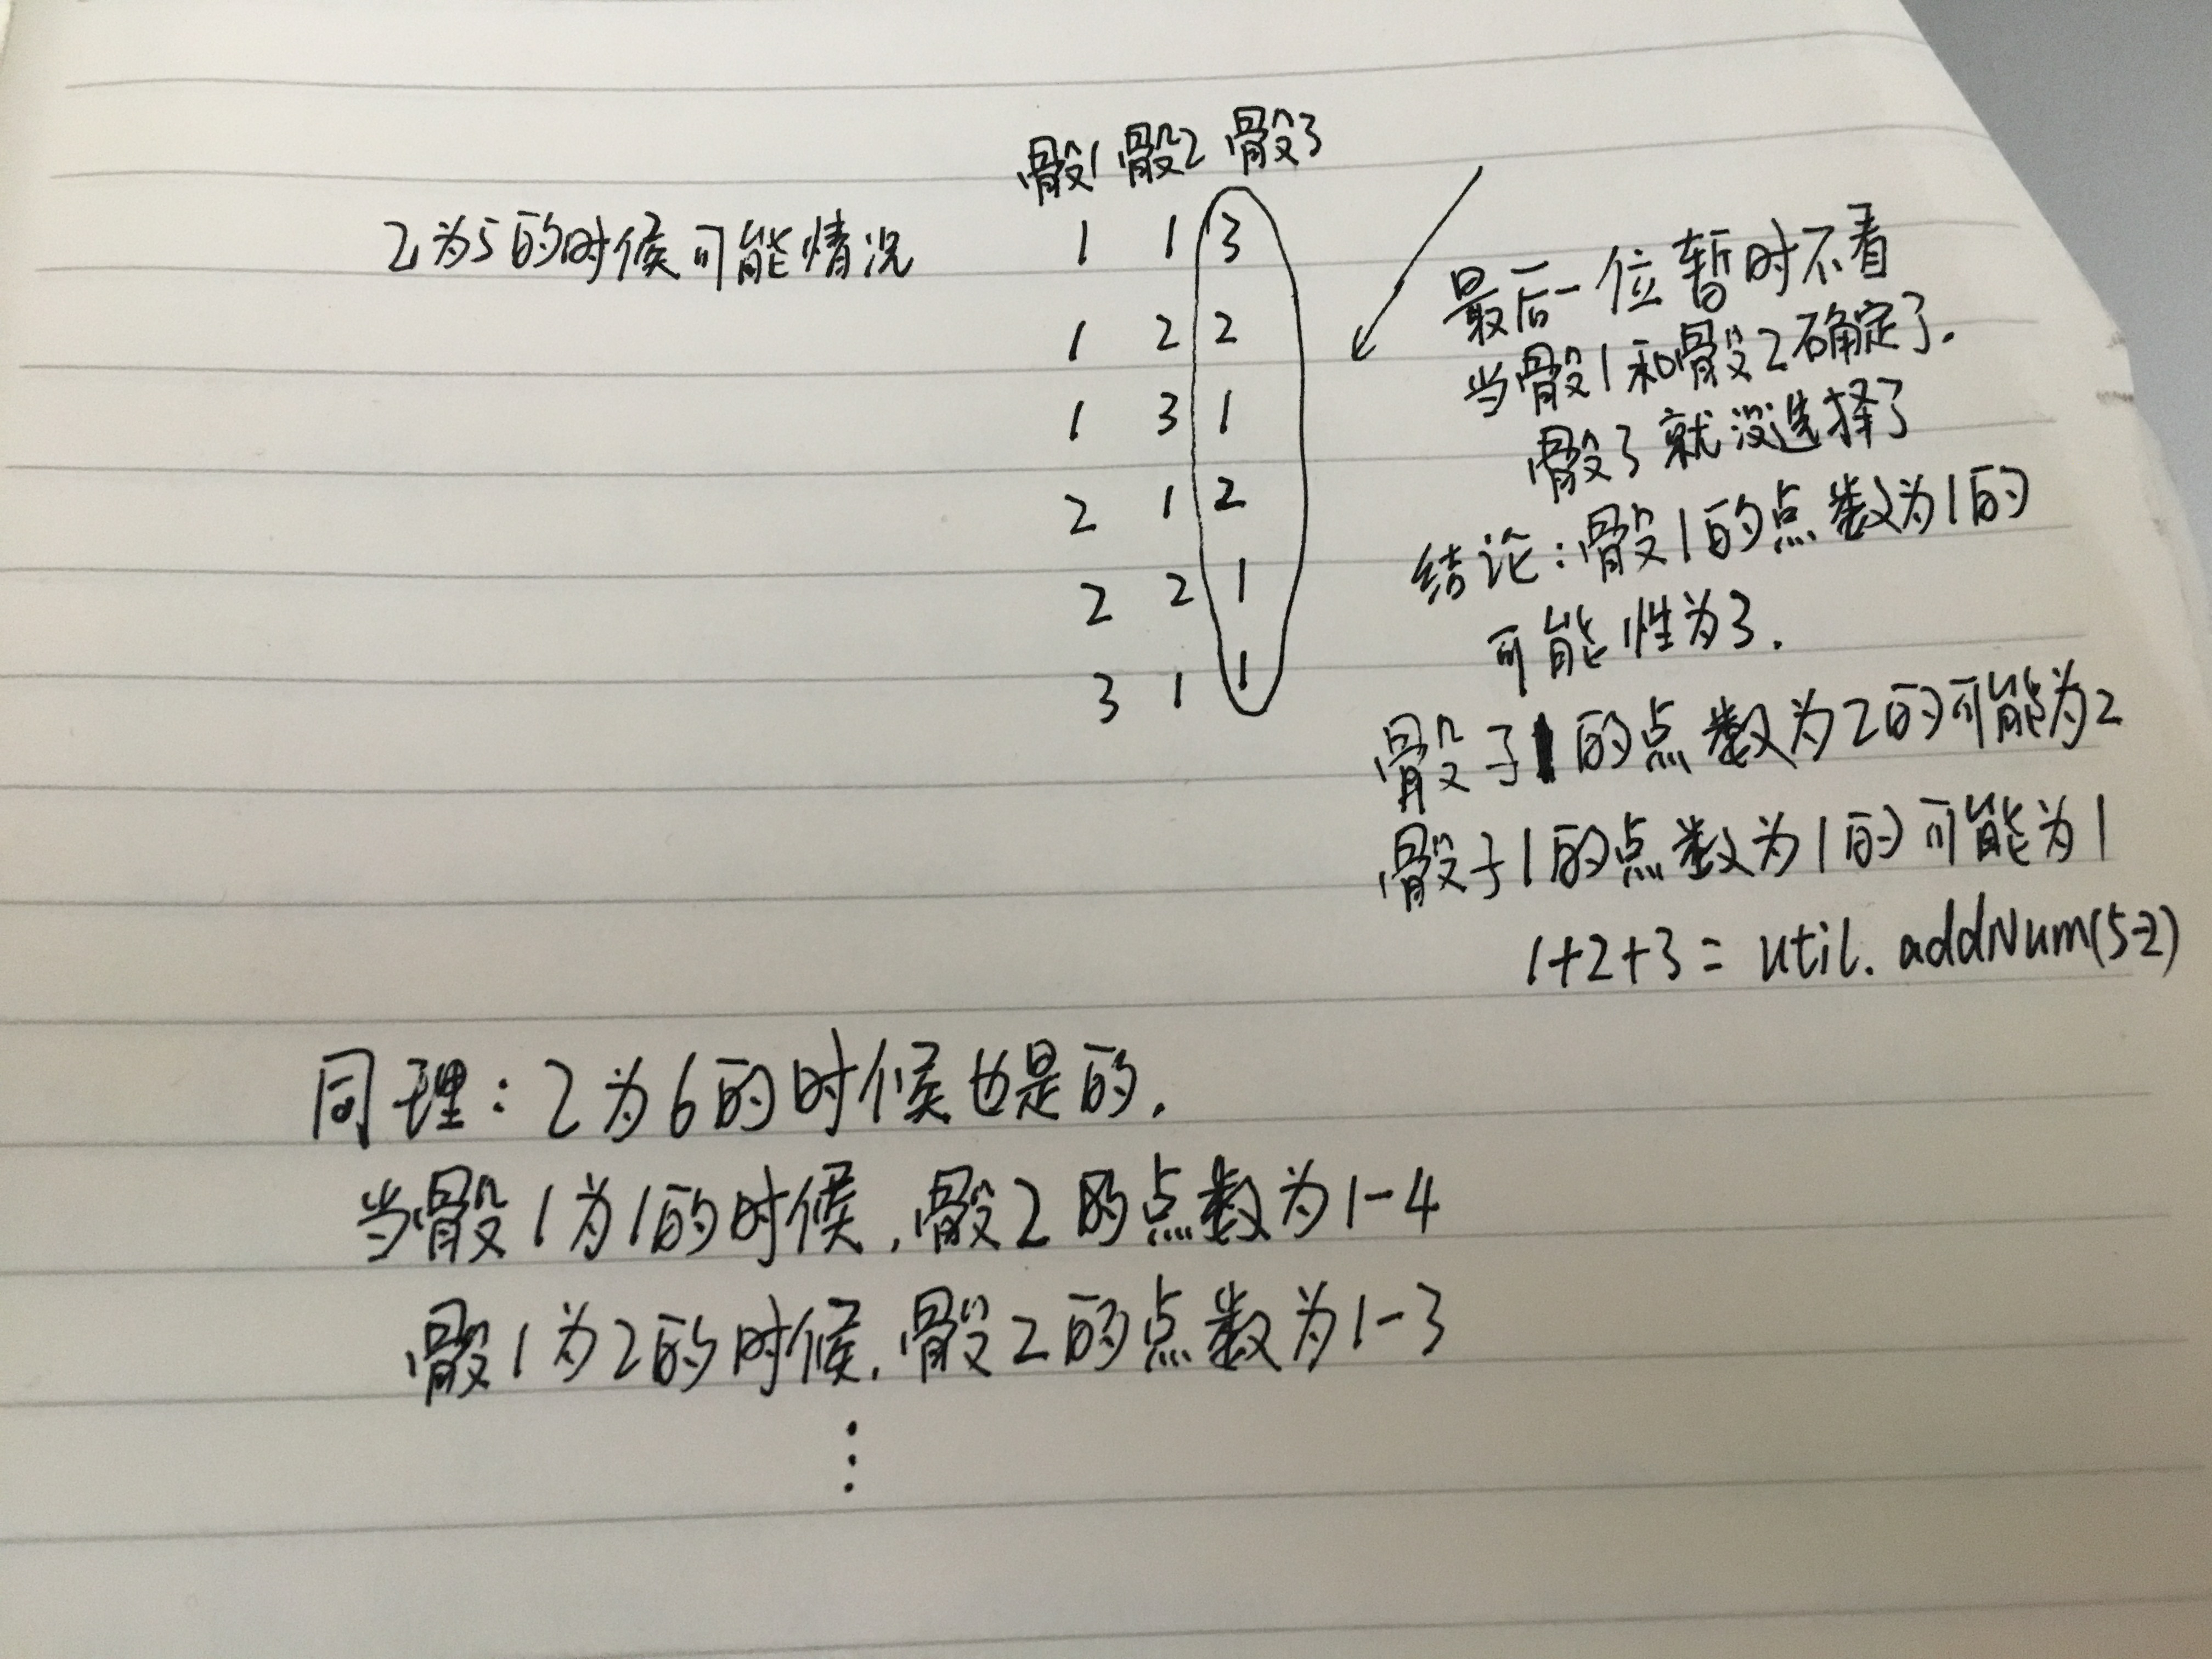 骰1 骰2 骰3
Z为5的时候可能情况
1 1 3
1 2 2
1 3 1
2 1 2
2 2 1
3 1 1
最后一位暂时不看
当骰1和骰2确定了.
骰3就没选择了
结论:骰1的点数为1的
可能性为3.
骰子1的点数为2的可能为2
骰子1的点数为1的可能为1
1+2+3 = util.addNum(5-2)
同理:Z为6的时候也是的.
当骰1为1的时候.骰2的点数为1-4
骰1为2的时候.骰2的点数为1-3
⋮